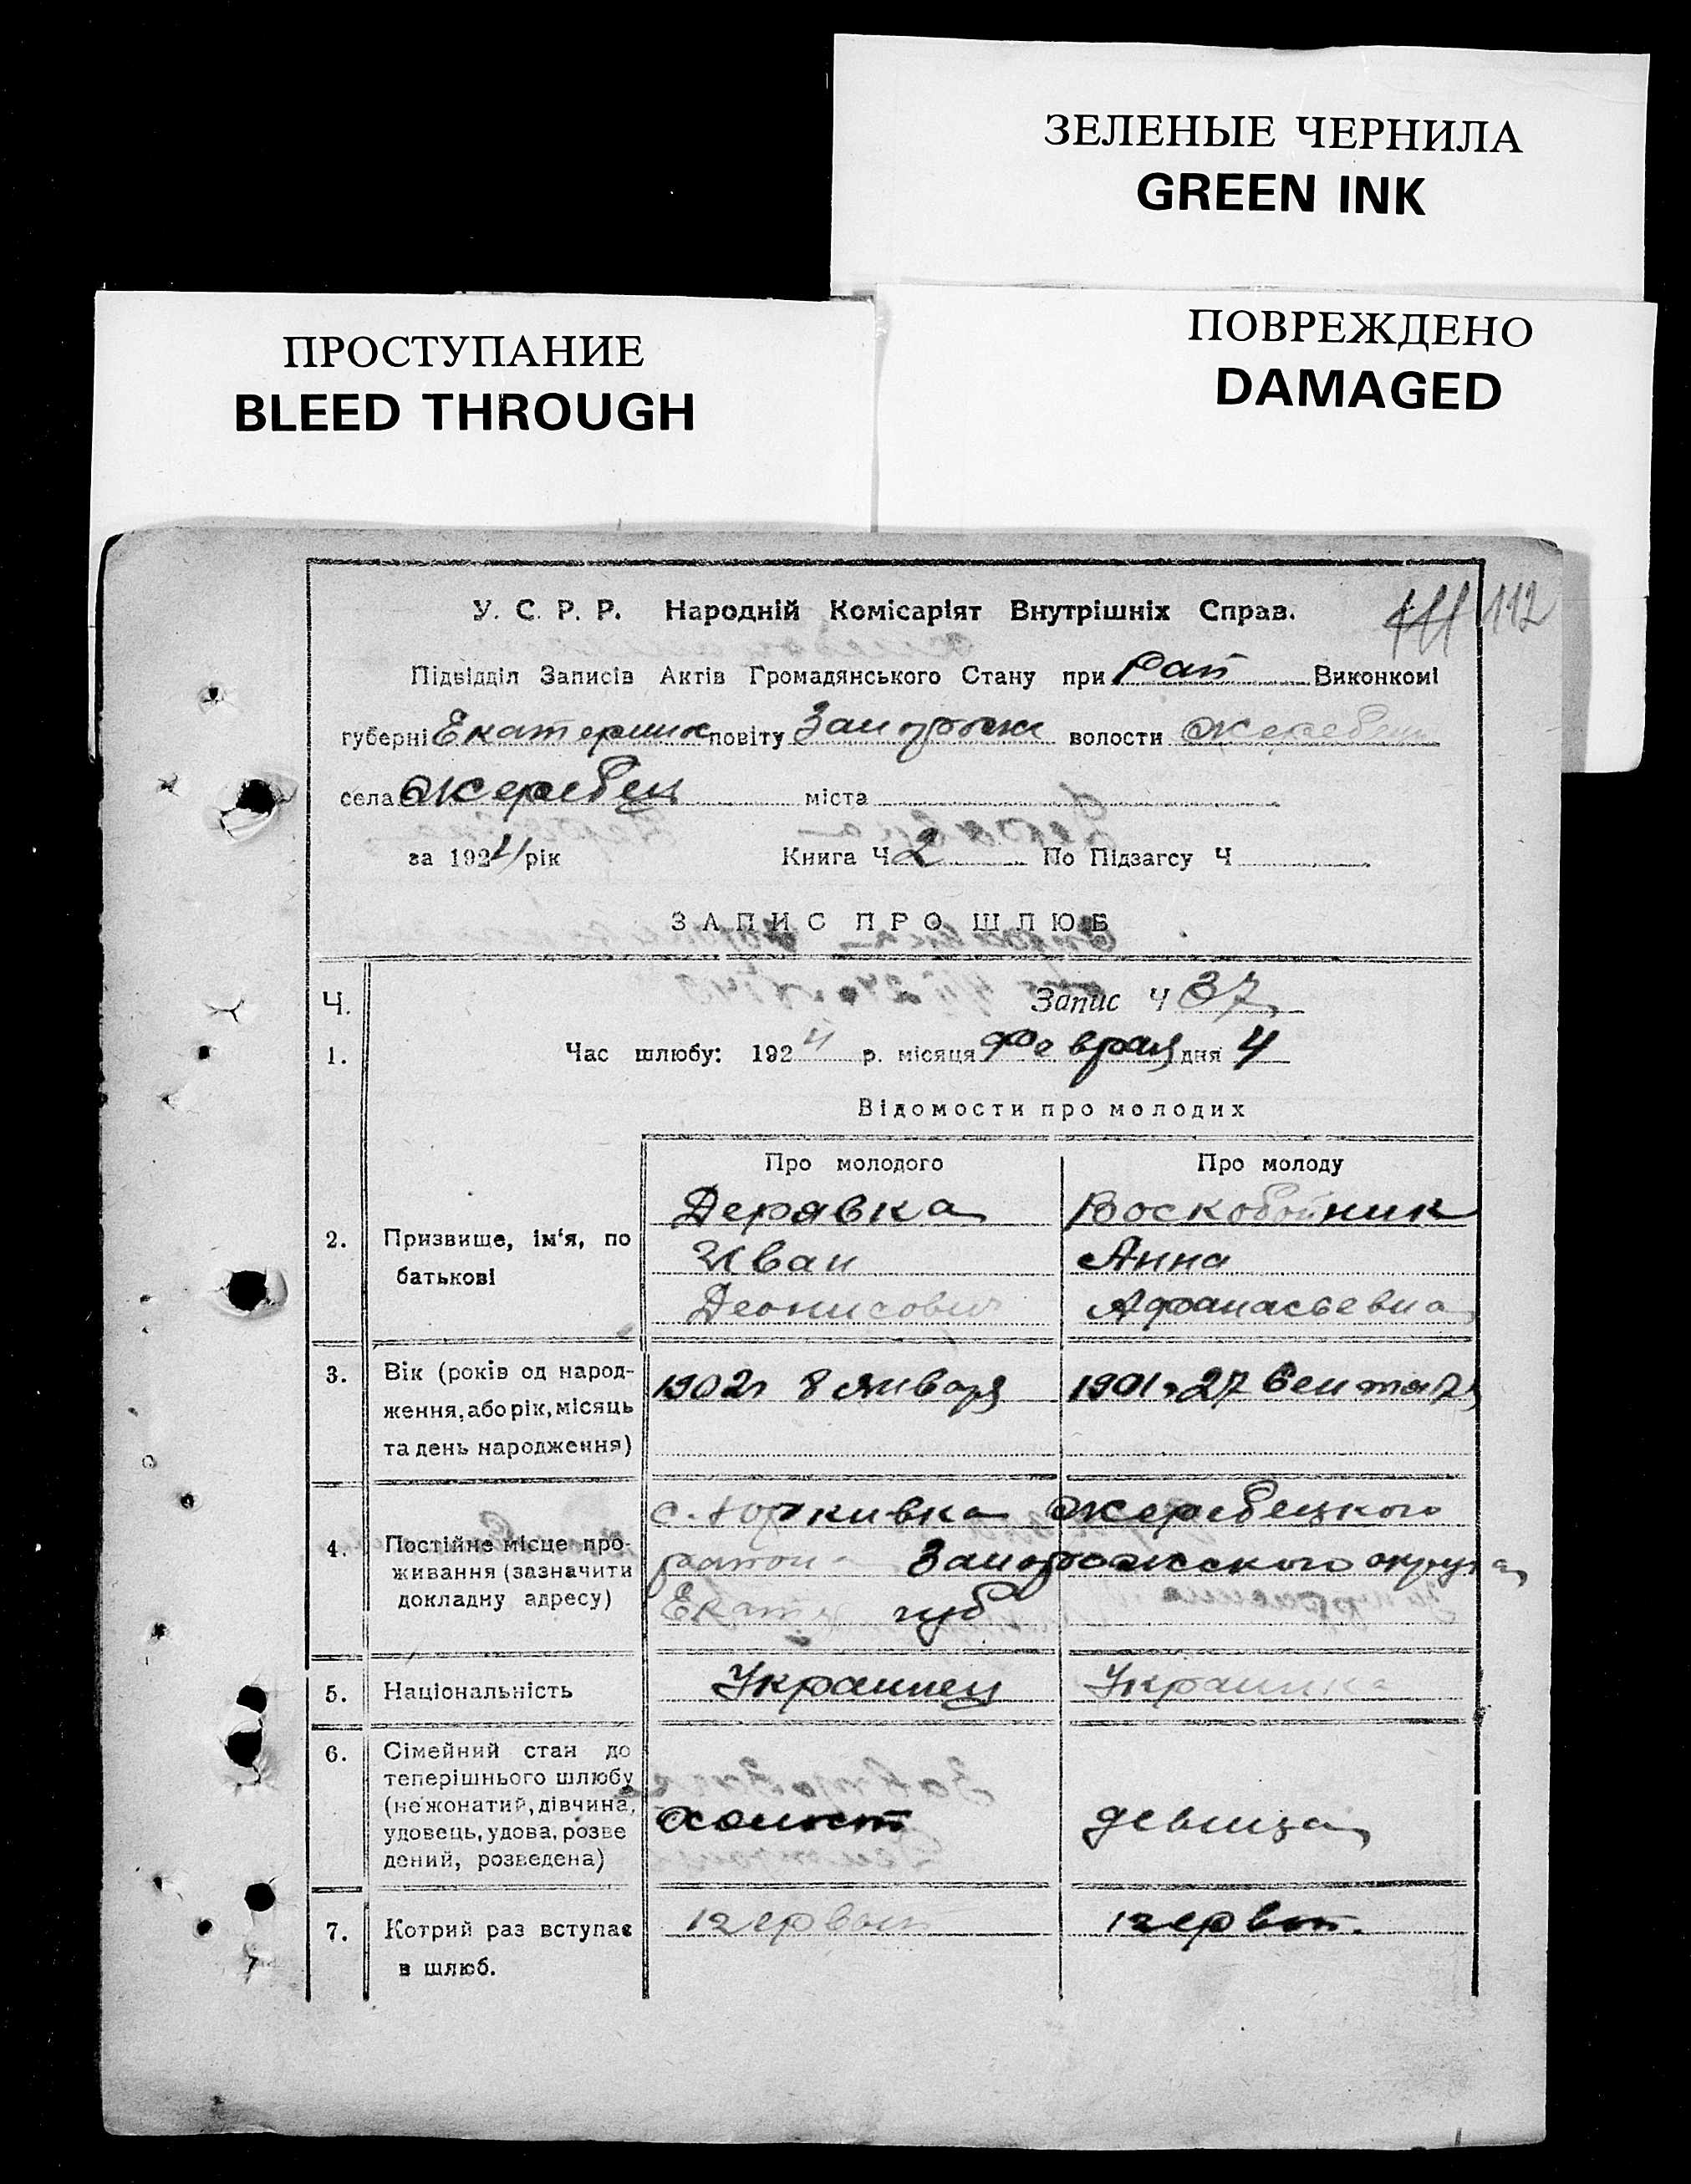 ЗЕЛЕНЫЕ ЧЕРНИЛА
GREEN INK
ПРОСТУПАНИЕ
BLEED THROUGH
ПОВРЕЖДЕНО
DAMAGED
112
У. С. Р. Р. Народній Комісаріят Внутрішніх Справ.
Підвідділ Записів Актів Громадянського Стану при Рай Виконкомі
губерні Екатеринос повіту Запорож волости Жеребец
села Жеребец міста
за 1924 рік Книга Ч 2 По Підзагсу Ч
ЗАПИС ПРО ШЛЮБ
Ч. Запис Ч 37
1. Час шлюбу: 1924 р. місяця Февраля дня 4
Відомости про молодих
Про молодого Про молоду
Дерявка Воскобойник
2. Призвище, ім'я, по батькові
Иван Анна
Деонисович Афанасьевна
3. Вік (років од народ-
ження, або рік, місяць
та день народження)
1902 г 8 января 1901 г 27 Сентября
4. Постійне місце про-
живання (зазначити
докладну адресу)
с. Юркивка Жеребецкого
района Запорожского округа
Екатер губ
5. Національність Украинец Украинка
6. Сімейний стан до
теперішнього шлюбу
(нежонатий, дівчина,
удовець, удова, розве
дений, розведена)
холост девица
7. Котрий раз вступає
в шлюб.
первый первый